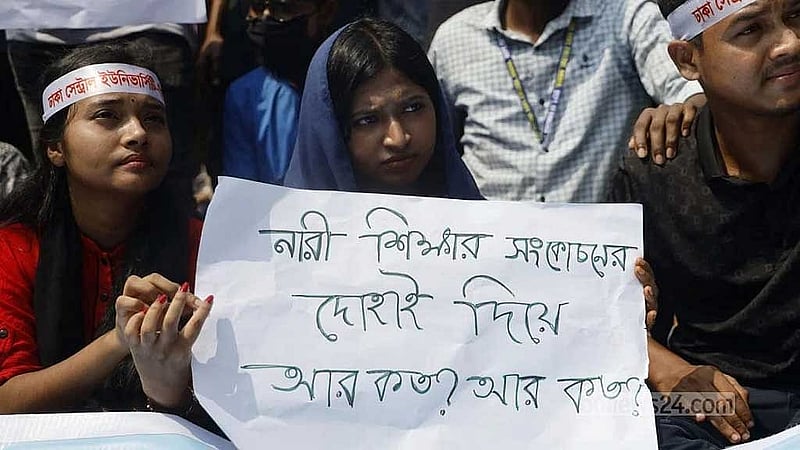 ঢাকা সেন্ট্রাল ইউনিভার্সিটি
ঢাকা সে
নারী শিক্ষার সংকোচনের
দোহাই দিয়ে
আর কত? আর কত?
s24.com